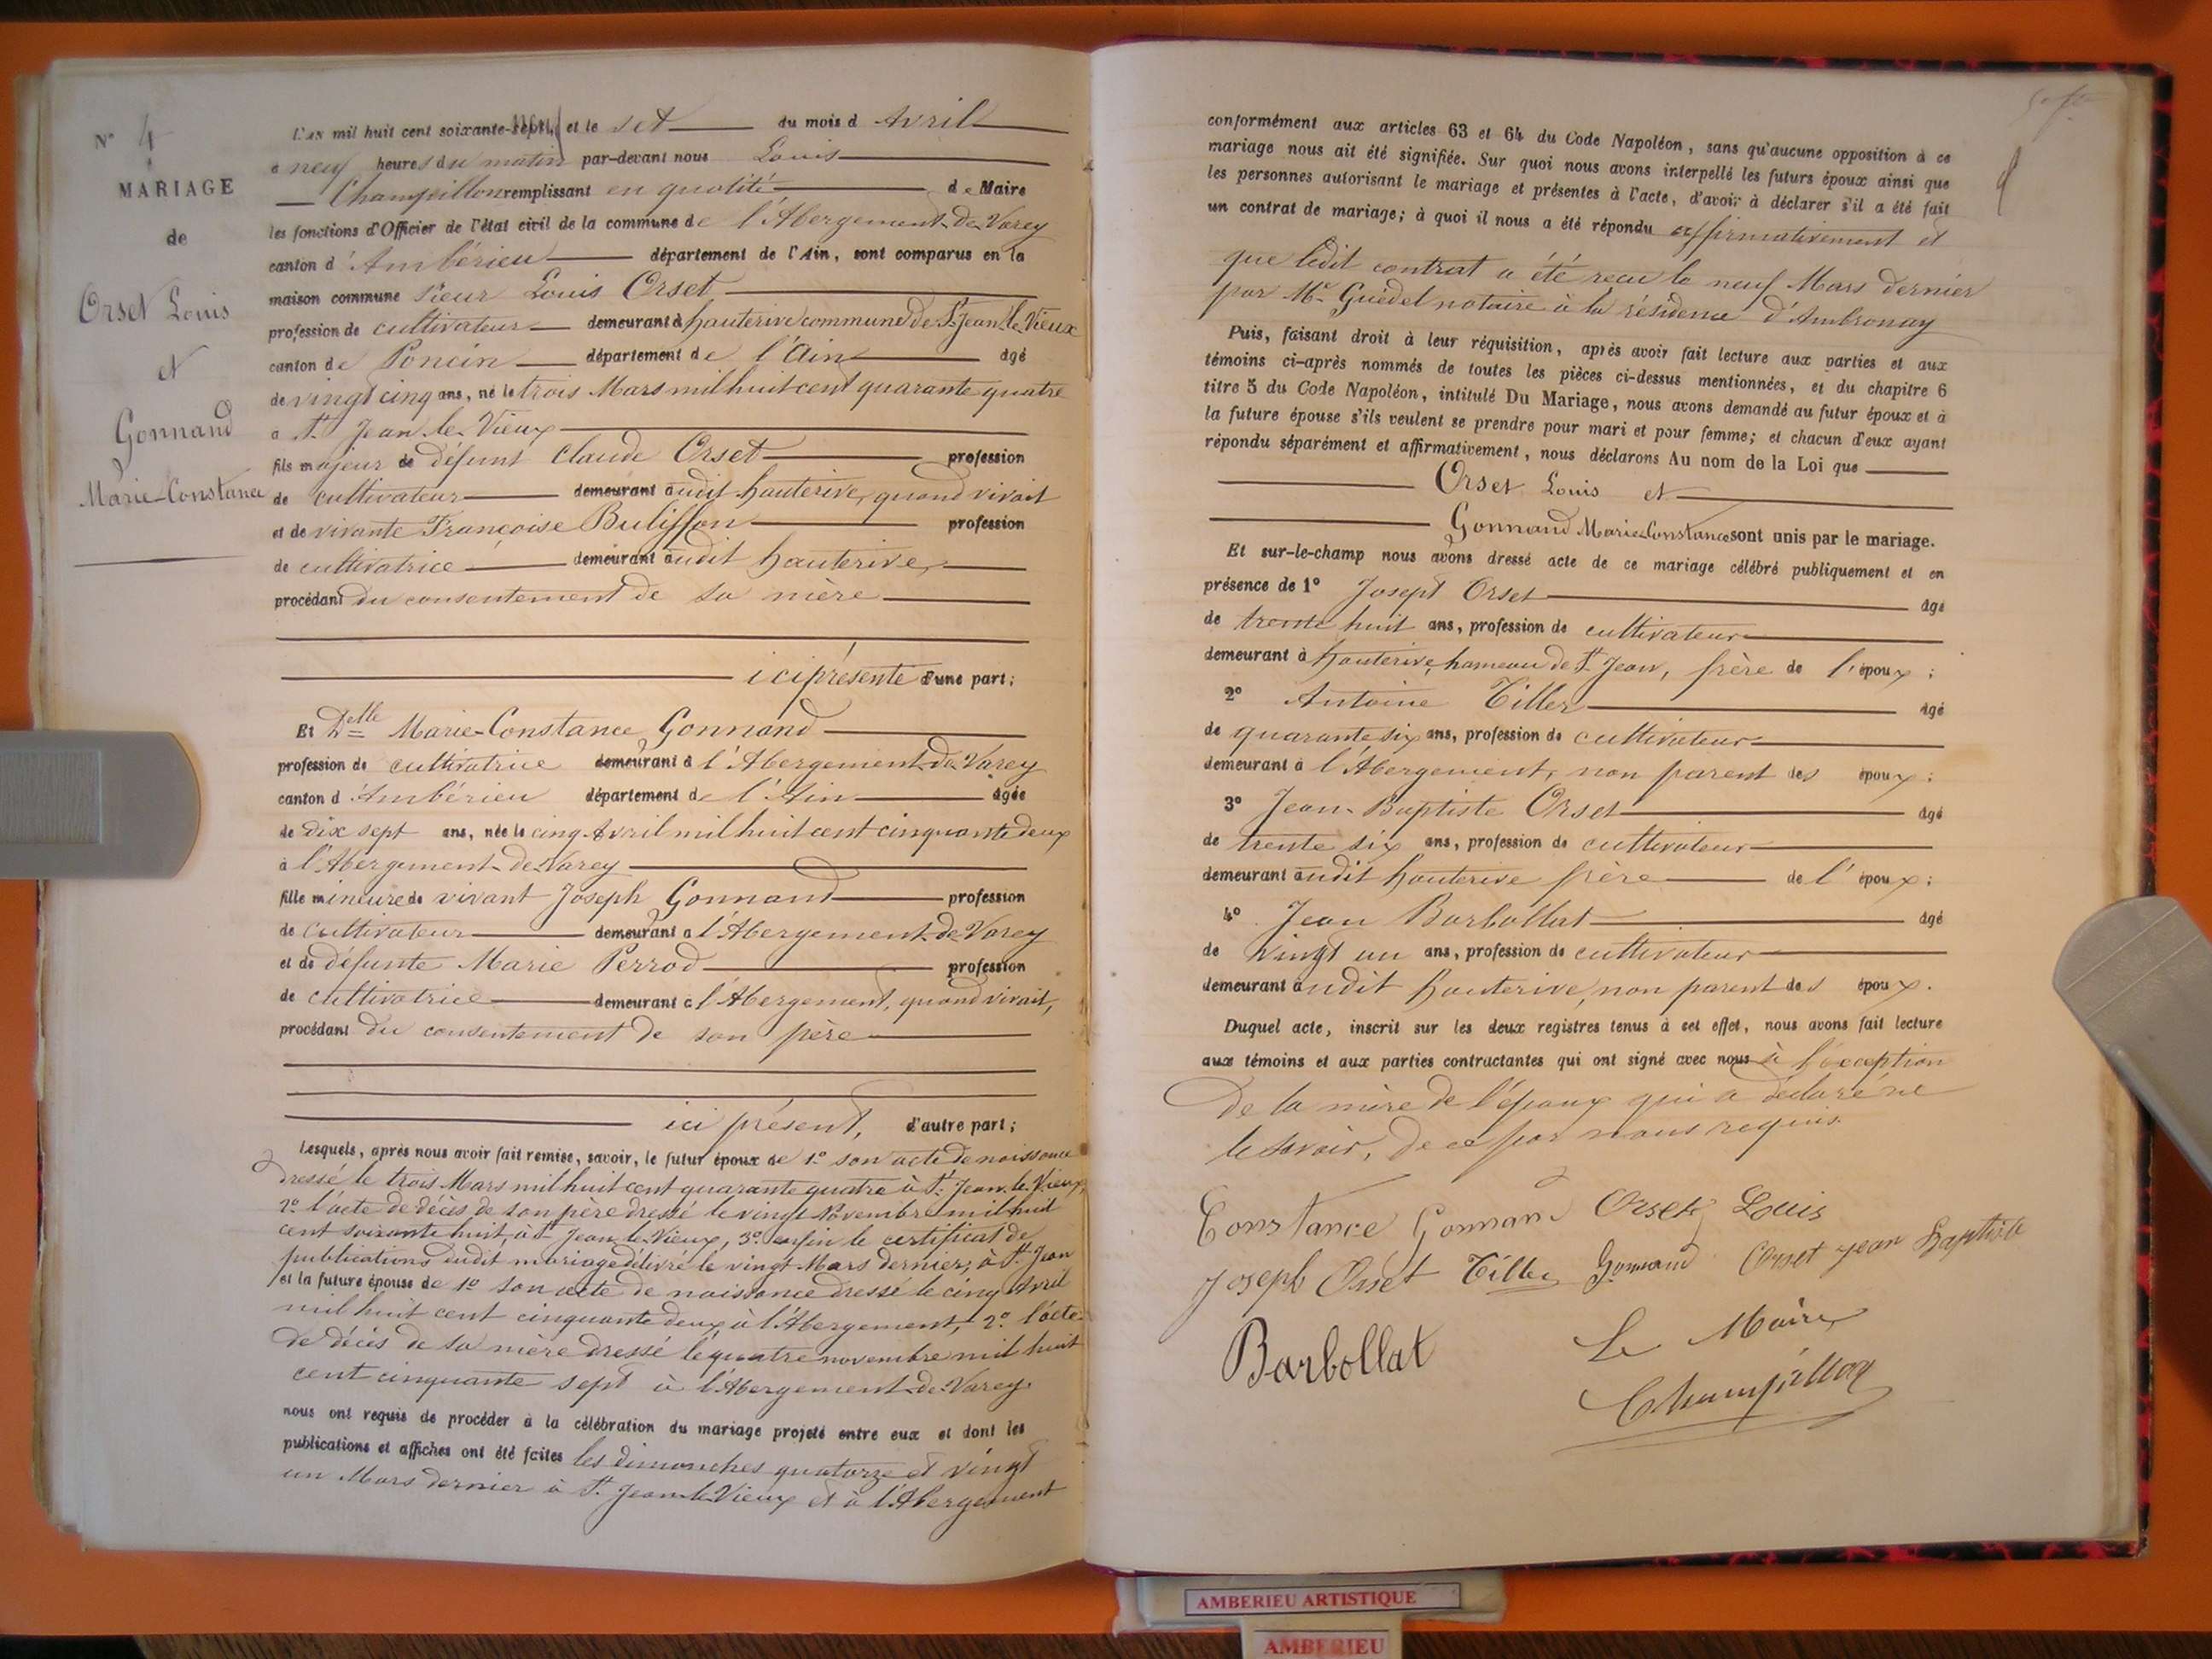 N° 4
MARIAGE
de
Orset Louis
et
Gonnand
Marie-Constance
L'AN mil huit cent soixante-neuf, et le sept du mois d'Avril
à neuf heures du matin par-devant nous Louis
Champillon remplissant en qualité de Maire
les fonctions d'Officier de l'état civil de la commune de l'Abergement-de-Varey
canton d'Ambérieu département de l'Ain, sont comparus en la
maison commune sieur Louis Orset
profession de cultivateur demeurant à hauterive commune de St Jean-le-Vieux
canton de Poncin département de l'Ain âgé
de vingt cinq ans, né le trois Mars mil huit cent quarante quatre
à St Jean-le-Vieux
fils majeur de défunt Claude Orset profession
de cultivateur demeurant audit hauterive, quand vivait
et de vivante Françoise Buliffon profession
de cultivatrice demeurant audit hauterive,
procédant du consentement de sa mère
ici présente d'une part;
Et Delle Marie-Constance Gonnand
profession de cultivatrice demeurant à l'Abergement-de-Varey
canton d'Ambérieu département de l'Ain âgée
de dix sept ans, née le cinq Avril mil huit cent cinquante deux
à l'Abergement-de-Varey
fille mineure de vivant Joseph Gonnand profession
de cultivateur demeurant à l'Abergement-de-Varey
et de défunte Marie Perrod profession
de cultivatrice demeurant à l'Abergement, quand vivait,
procédant du consentement de son père
ici présent, d'autre part;
Lesquels, après nous avoir fait remise, savoir, le futur époux de 1° son acte de naissance
dressé le trois Mars mil huit cent quarante quatre à St Jean-le-Vieux,
2° l'acte de décès de son père dressé le vingt Novembre mil huit
cent soixante huit, à St Jean-le-Vieux, 3° enfin le certificat de
publications dudit mariage délivré le vingt Mars dernier, à St Jean
et la future épouse de 1° son acte de naissance dressé le cinq Avril
mil huit cent cinquante deux à l'Abergement, 2° l'acte
de décès de sa mère dressé le quatre novembre mil huit
cent cinquante sept à l'Abergement-de-Varey
nous ont requis de procéder à la célébration du mariage projeté entre eux et dont les
publications et affiches ont été faites les dimanches quatorze et vingt
un Mars dernier à St Jean-le-Vieux et à l'Abergement
conformément aux articles 63 et 64 du Code Napoléon, sans qu'aucune opposition à ce
mariage nous ait été signifiée. Sur quoi nous avons interpellé les futurs époux ainsi que
les personnes autorisant le mariage et présentes à l'acte, d'avoir à déclarer s'il a été fait
un contrat de mariage; à quoi il nous a été répondu affirmativement et
que ledit contrat a été reçu le neuf Mars dernier
par Me Guédel notaire à la résidence d'Ambronay
Puis, faisant droit à leur réquisition, après avoir fait lecture aux parties et aux
témoins ci-après nommés de toutes les pièces ci-dessus mentionnées, et du chapitre 6
titre 5 du Code Napoléon, intitulé Du Mariage, nous avons demandé au futur époux et à
la future épouse s'ils veulent se prendre pour mari et pour femme; et chacun d'eux ayant
répondu séparément et affirmativement, nous déclarons Au nom de la Loi que
Orset Louis et
Gonnand Marie-Constance sont unis par le mariage.
Et sur-le-champ nous avons dressé acte de ce mariage célébré publiquement et en
présence de 1° Josept Orset âgé
de trente huit ans, profession de cultivateur
demeurant à hauterive, hameau de St Jean, frère de l'époux;
2° Antoine Tiller âgé
de quarante six ans, profession de cultivateur
demeurant à l'Abergement, non parent des époux;
3° Jean-Baptiste Orset âgé
de trente six ans, profession de cultivateur
demeurant audit hauterive frère de l'époux;
4° Jean Barbollat âgé
de vingt un ans, profession de cultivateur
demeurant audit hauterive, non parent des époux.
Duquel acte, inscrit sur les deux registres tenus à cet effet, nous avons fait lecture
aux témoins et aux parties contractantes qui ont signé avec nous à l'exception
de la mère de l'époux qui a déclaré ne
le savoir, de ce par nous requis.
Constance Gonnand Orset Louis
Joseph Orset Tiller Gonnand Orset jean Baptiste
Barbollat Le Maire
Champillon
AMBERIEU ARTISTIQUE
AMBERIEU